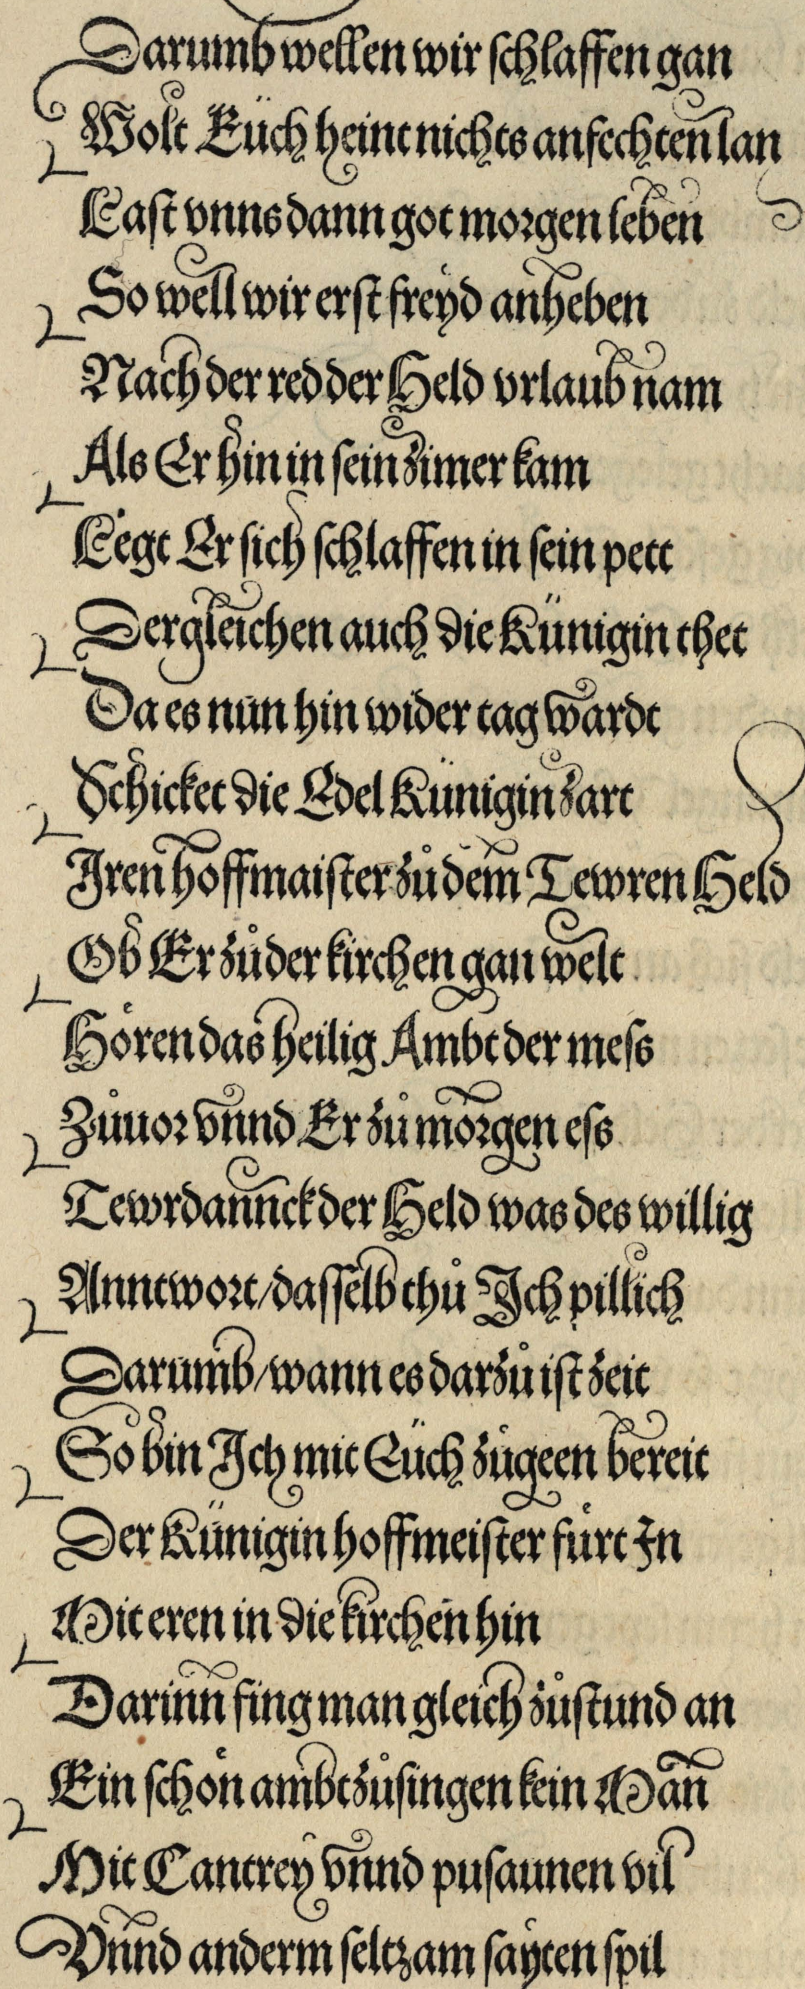 Darumb wellen wir schlaffen gan
Wolt Euch heint nichts anfechten lan
Last vnns dann got morgen leben
So well wir erst freyd anheben
Nach der red der Held vrlaub nam
Als Er hin in sein zimer kam
Legt Er sich schlaffen in sein pett
Dergleichen auch die Künigin thet
Da es nun hin wider tag wardt
Schicket die Edel Künigin zart
Iren hoffmaister zů dem Tewren Held
Ob Er zů der kirchen gan welt
Hören das heilig Ambt der mess
Zůuor vnnd Er zů morgen ess
Tewrdannck der Held was des willig
Anntwort/dasselb thů Ich pillich
Darumb/wann es darzů ist zeit
So bin Ich mit Euch zůgeen bereit
Der Künigin hoffmeister fürt In
Mit eren in die kirchen hin
Darinn fing man gleich zůstund an
Ein schön ambt zůsingen kein Man
Mit Cantrey vnnd pusaunen vil
Vnnd anderm seltzam sayten spil